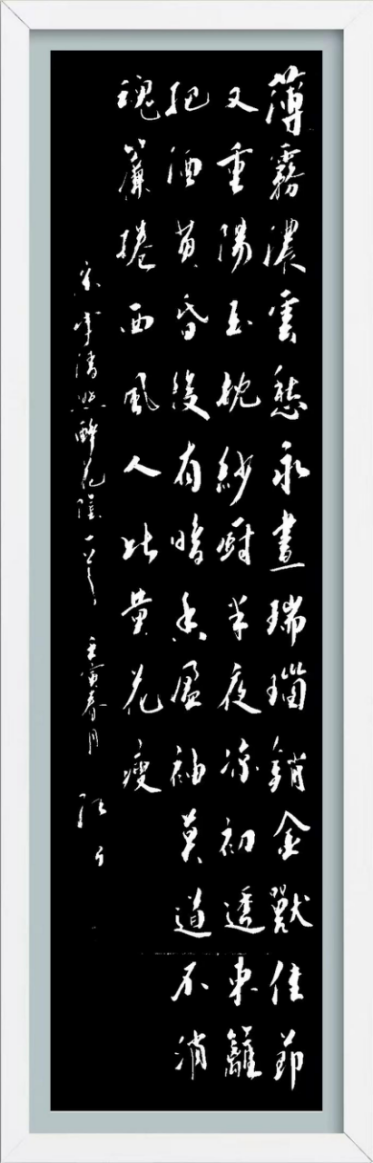 薄霧濃雲愁永晝瑞瑙銷金獸佳節
又重陽玉枕紗厨半夜涼初透東籬
把酒黃昏後有暗香盈袖莫道不消
魂簾捲西風人比黃花瘦
宋李清照醉花陰一首 壬寅春月